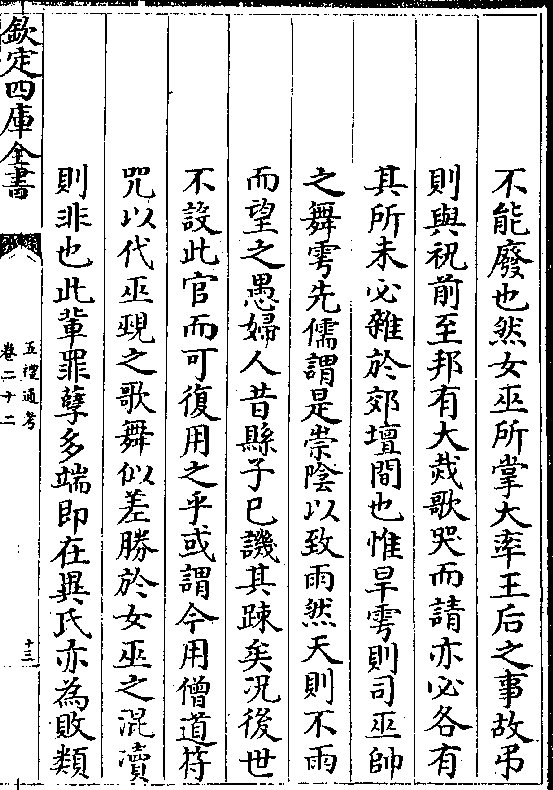 不能廢也然女巫所掌大率王后之事故弔
則與祝前至邦有大烖歌哭而請亦必各有
其所未必雜於郊壇間也惟旱雩則司巫帥
之舞雩先儒謂是崇陰以致雨然天則不雨
而望之愚婦人昔縣子已譏其踈矣况後世
不設此官而可復用之乎或謂今用僧道符
咒以代巫覡之歌舞似差勝於女巫之混瀆
則非也此輩罪孽多端即在異氏亦為敗類
欽定四庫全書
五禮通考
卷二十二
十三